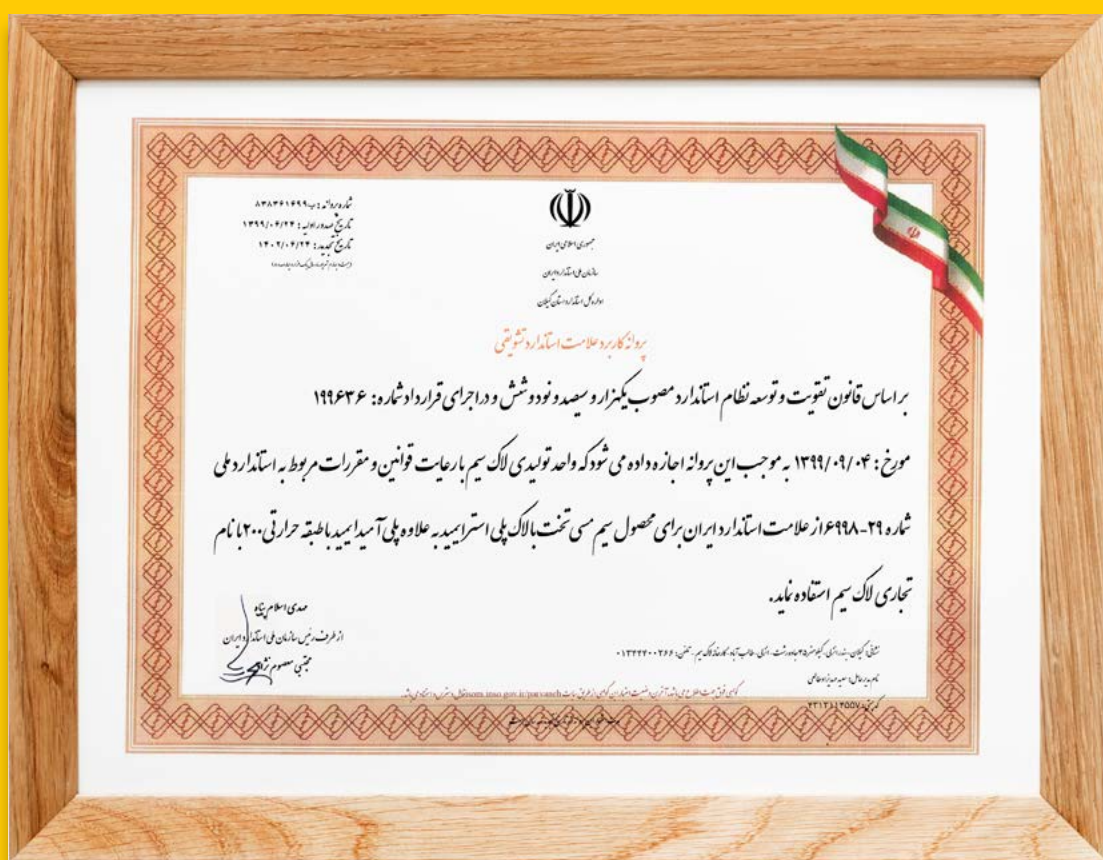 شماره پروانه: ب۸۳۸۳۶۱۶۹۹
تاریخ صدور اولیه: ۱۳۹۹/۰۶/۲۴
تاریخ تمدید: ۱۴۰۲/۰۶/۲۴
جمهوری اسلامی ایران
سازمان ملی استاندارد ایران
اداره کل استاندارد استان گیلان
پروانه کاربرد علامت استاندارد تشویقی
بر اساس قانون تقویت و توسعه نظام استاندارد مصوب یکهزار و سیصد و نود و شش و در اجرای قرارداد شماره: ۱۹۹۶۳۶
مورخ: ۱۳۹۹/۰۹/۰۴ به موجب این پروانه اجازه داده می شود که واحد تولیدی لاک سیم با رعایت قوانین و مقررات مربوط به استاندارد ملی
شماره ۲۹-۶۹۹۸ از علامت استاندارد ایران برای محصول سیم مسی تخت با لاک پلی استرایمید به علاوه پلی آمید ایمید با طبقه حرارتی ۲۰۰ با نام
تجاری لاک سیم استفاده نماید.
مهدی اسلام پناه
از طرف رئیس سازمان ملی استاندارد ایران
مجتبی معصوم نژاد
نشانی: گیلان - بندر انزلی - کیلومتر ۲۵ جاده رشت - انزلی - طالب آباد - کارخانه لاک سیم - تلفن: ۰۱۳۴۴۴۰۰۲۶۶
نام مدیرعامل: سعید
کد پستی: ۴۳۱۳۱۱۴۵۵۷